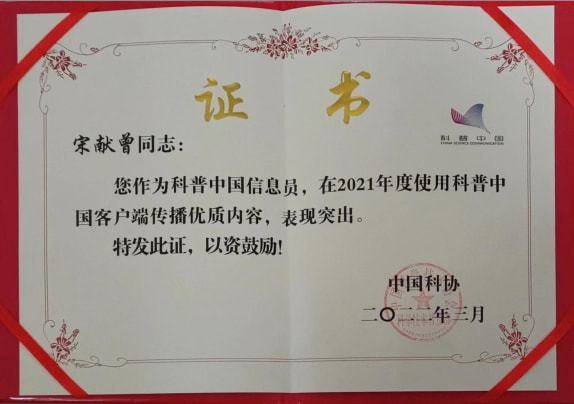 证书
科普中国
CHINA SCIENCE COMMUNICATION
宋献曾同志：
您作为科普中国信息员，在2021年度使用科普中
国客户端传播优质内容，表现突出。
特发此证，以资鼓励！
中国科协
二〇二二年三月